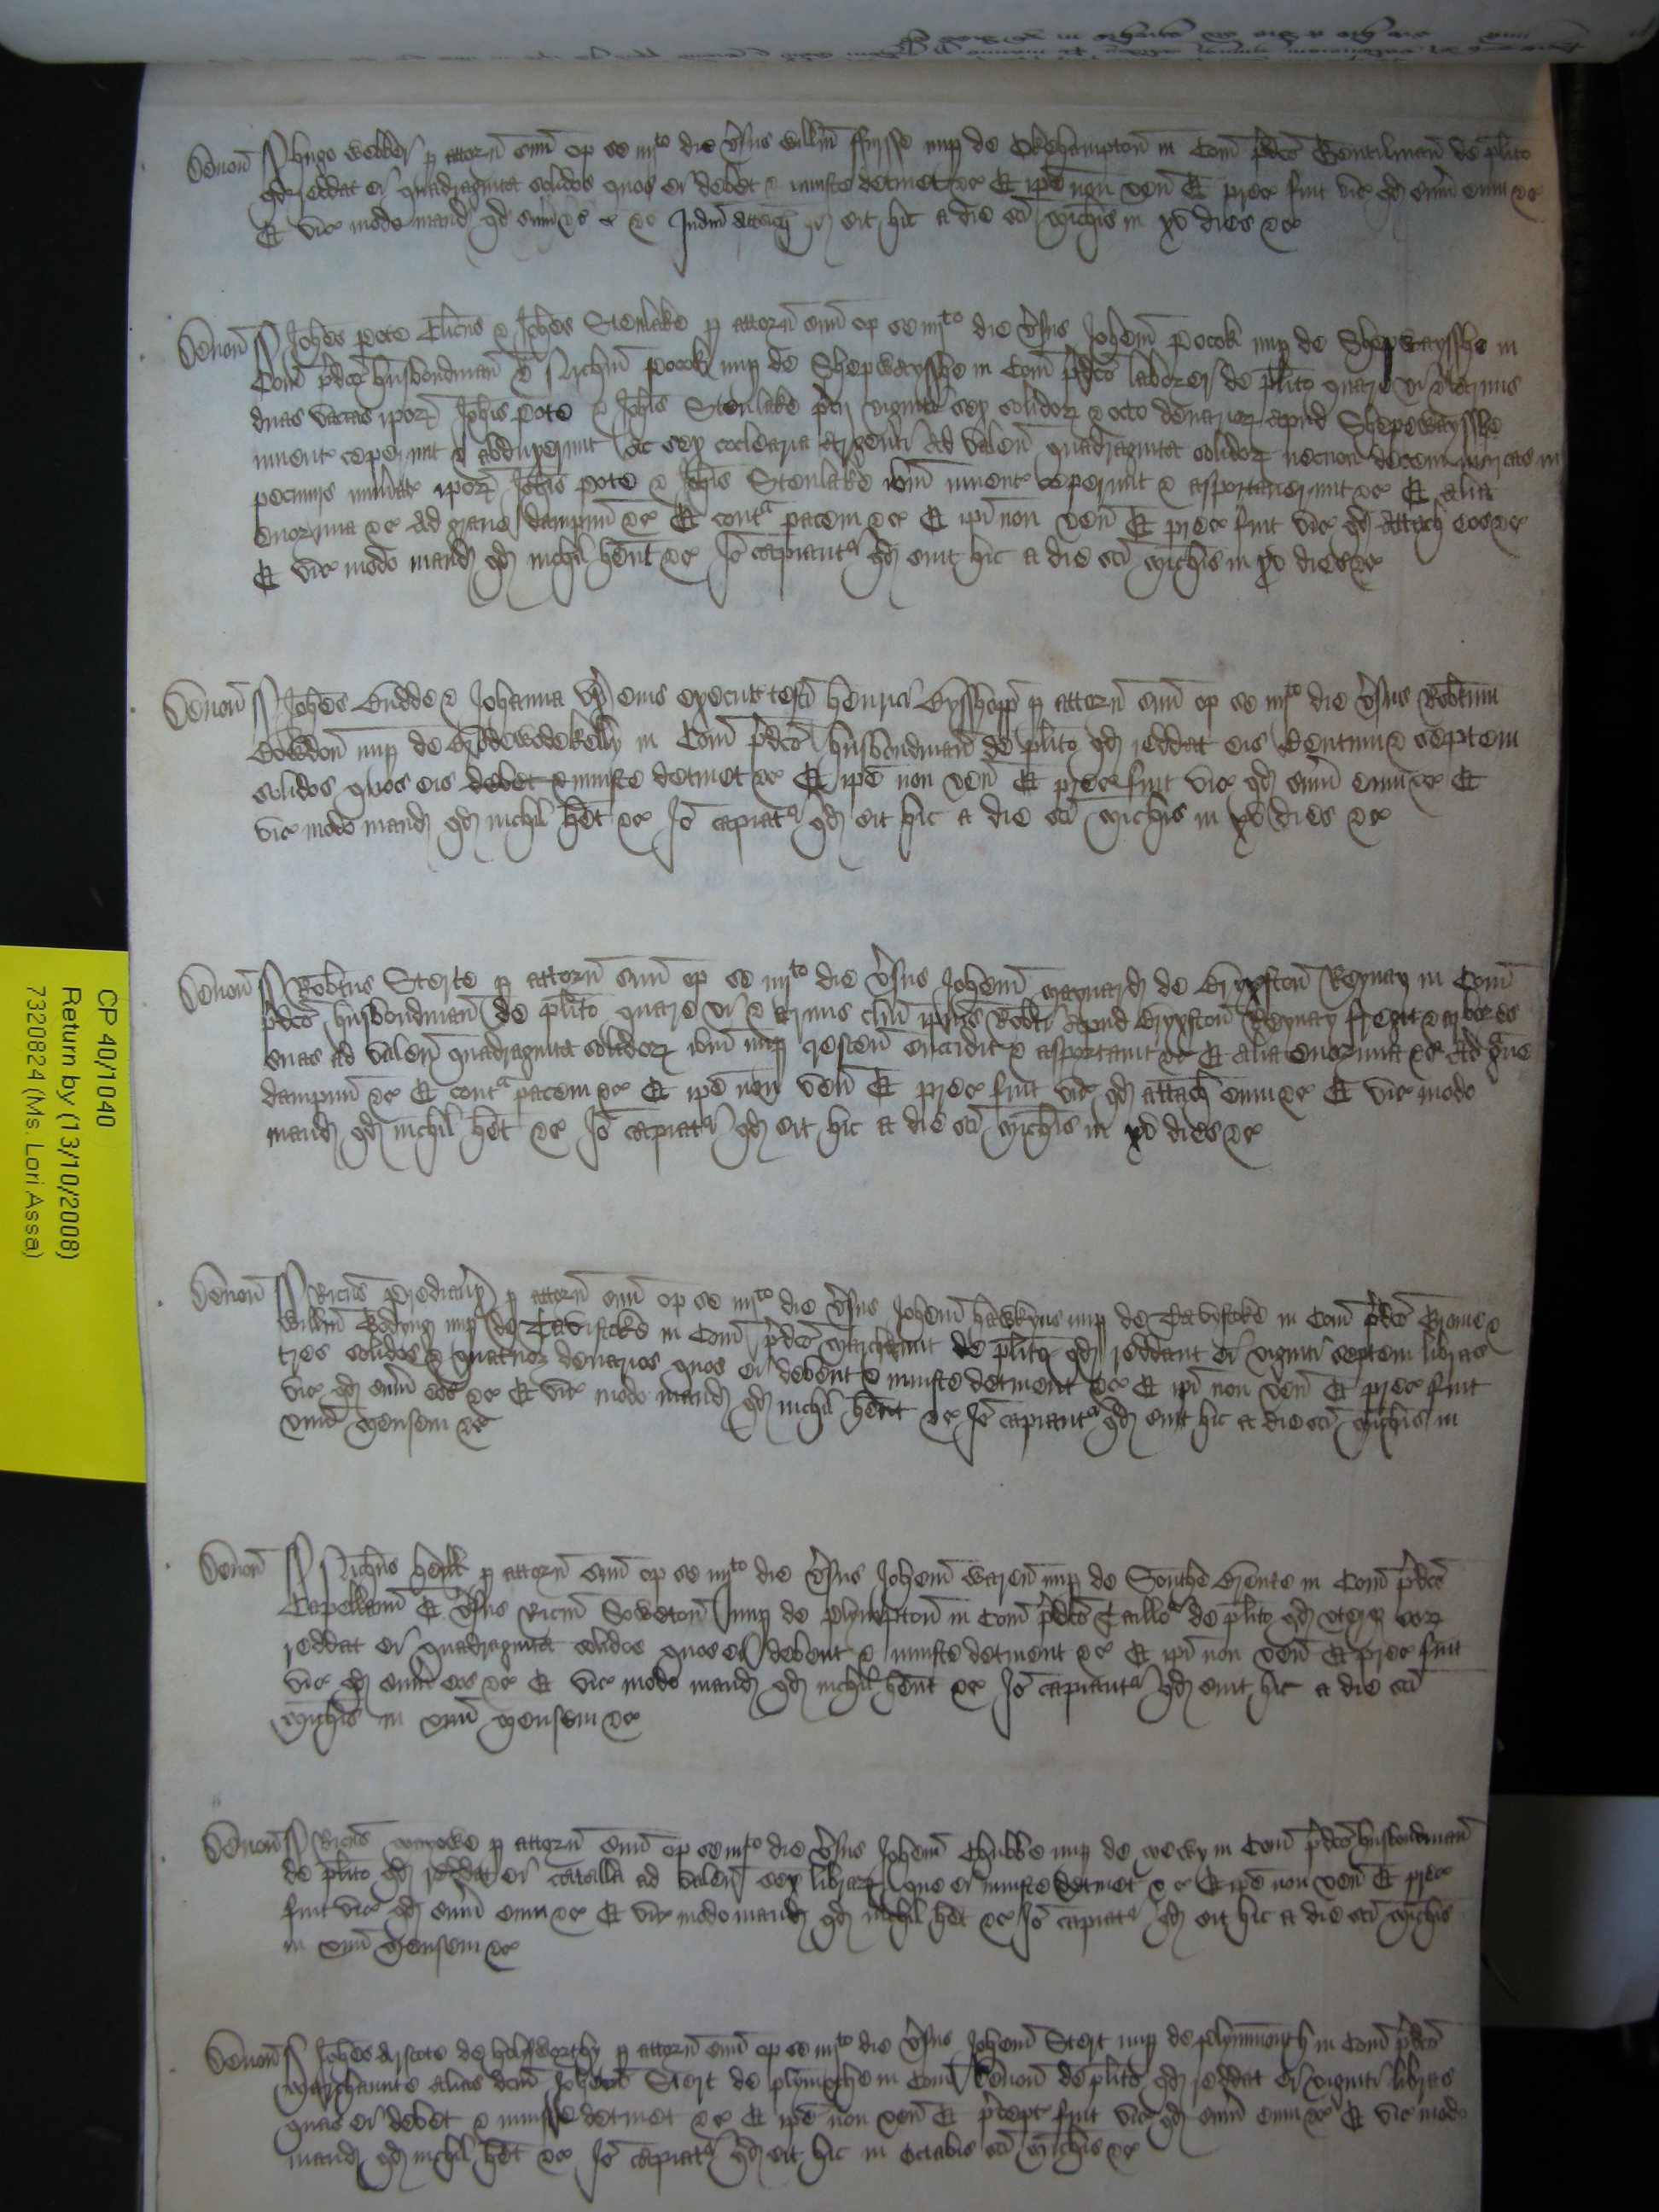 Devon̄ Hugo Webber p attorn̄ suū op se iiijto die v̄sus Willm̄ ffursse nup de Okehampton̄ in Com̄ p̄dc̄o Gentilman̄ de pl̄ito
qd reddat ei quadraginta solidos quos ei debet & iniuste detinet &c Et ip̄e non ven̄ Et prec̄ fuit vic̄ qd sum̄ eum &c
Et vic̄ modo mand qd sum̄ &c Iudm̄ attach qd sit hic a die sc̄i Mich̄is in xv dies &c
Devon̄ Joh̄es Pote Cl̄icus & Joh̄es Stenlake p attorn̄ suū op se iiijto die v̄sus Joh̄em Pocok nup de Shepwaysshe in
Com̄ p̄dc̄o husbondman̄ & Nich̄m Pocok nup de Shepwaysshe in Com̄ p̄dc̄o laborer de pl̄ito quare vi & armis
duas vaccas ipor̄ Joh̄is Pote & Joh̄is Stenlake p̄cii viginti sex solidor & octo denarior apud Shepewaysshe
invent̄ ceperunt & abduxerunt ac sex coclearia argenti ad valen̄ quadraginta solidor necnon decem marcas in
pecuniis numat̄ ipor̄ Joh̄is Pote & Joh̄is Stenlake ibm̄ invent̄ ceperunt & asportaverunt &c Et alia
enormia &c Ad grave dampnū &c Et conta pacem &c Et ip̄i non ven̄ Et prec̄ fuit vic̄ qd attach eos &c
Et vic̄ modo mand qd nichil hēnt &c Iō capiantr qd sint hic a die sc̄i Mich̄is in xv dies &c
Devon̄ Joh̄es Budde & Johanna ux̄ eius execut̄ testi Henrici Bysshopp p attorn̄ suū op se iiijto die v̄sus Robtum
Bowdon̄ nup de Brodewodekelly in Com̄ p̄dc̄o husbondman̄ de pl̄ito qd reddat eis Centum & septem
solidos quos eis debet & iniuste detinet &c Et ip̄e non ven̄ Et prec̄ fuit vic̄ qd sum̄ eum &c Et
vic̄ modo mand qd nichil hēt &c Iō capiatr qd sit hic a die sc̄i Mich̄is in xv dies &c
Devon̄ Robtus Sterte p attorn̄ suū op se iiijto die v̄sus Joh̄em Maynard de Bryxston̄ Reynay in Com̄
p̄dc̄o husbondman̄ de pl̄ito quare vi & armis cl̄m ip̄ius Robti apud Bryxston̄ Reynay fregit & arbores
suas ad valen̄ quadraginta solidor ibm̄ nup crescen̄ succidit & asportavit &c Et alia enormia &c Ad grave
dampnū &c Et conta pacem &c Et ip̄e non ven̄ Et prec̄ fuit vic̄ qd attach eum &c Et vic̄ modo
mand qd nichil hēt &c Iō capiatr qd sit hic a die sc̄i Mich̄is in xv dies &c
Devon̄ Ric̄us p attorn̄ suū op se iiijto die v̄sus Joh̄em Hawkyns nup de Tavystoke in Com̄ p̄dc̄o &
Willm̄ nup de Tavistoke in Com̄ p̄dc̄o Marchaunt de pl̄ito qd reddant ei viginti septem libras
tres solidos & quatuor denarios quos ei debent & iniuste detinent &c Et ip̄i non ven̄ Et prec̄ fuit
vic̄ qd sum̄ eos &c Et vic̄ modo mand qd nichil hēnt &c Iō capiantr qd sint hic a die sc̄i Mich̄is in
unū Mensem &c
Devon̄ Nich̄us p attorn̄ suū op se iiijto die v̄sus Joh̄em Waren̄ nup de Southe Brente in Com̄ p̄dc̄o
Capellanū Et v̄sus Ric̄m Soweton̄ nup de Plympton̄ in Com̄ p̄dc̄o Taillor de pl̄ito qd uterq eor
reddat ei quadraginta solidos quos ei debent & iniuste detinent &c Et ip̄i non ven̄ Et prec̄ fuit
vic̄ qd sum̄ eos &c Et vic̄ modo mand qd nichil hēnt &c Iō capiantr qd sint hic a die sc̄i
Mich̄is in unū Mensem &c
Devon̄ Ric̄us Mayowe p attorn̄ suū op se iiijto die v̄sus Joh̄em Chubbe nup de in Com̄ p̄dc̄o husbondman̄
de pl̄ito qd reddat ei catalla ad valen̄ sex librar que ei iniuste detinet &c Et ip̄e non ven̄ Et prec̄
fuit vic̄ qd sum̄ eum &c Et vic̄ modo mand qd nichil hēt &c Iō capiatr qd sit hic a die sc̄i Mich̄is
in unū Mensem &c
Devon̄ Joh̄es Arscote de Holsworthy p attorn̄ suū op se iiijto die v̄sus Joh̄em Stert nup de Plymmouth in Com̄ p̄dc̄o
Marchaunte alias dc̄m Joh̄em Stert de in Com̄ Devon̄ de pl̄ito qd reddat ei viginti libras
quas ei debet & iniuste detinet &c Et ip̄e non ven̄ Et p̄cept̄ fuit vic̄ qd sum̄ eum &c Et vic̄ modo
mand qd nichil hēt &c Iō capiatr qd sit hic in octabis sc̄i Mich̄is &c
CP 40/1040
Return by (13/10/2008)
7320824 (Ms. Lori Assa)